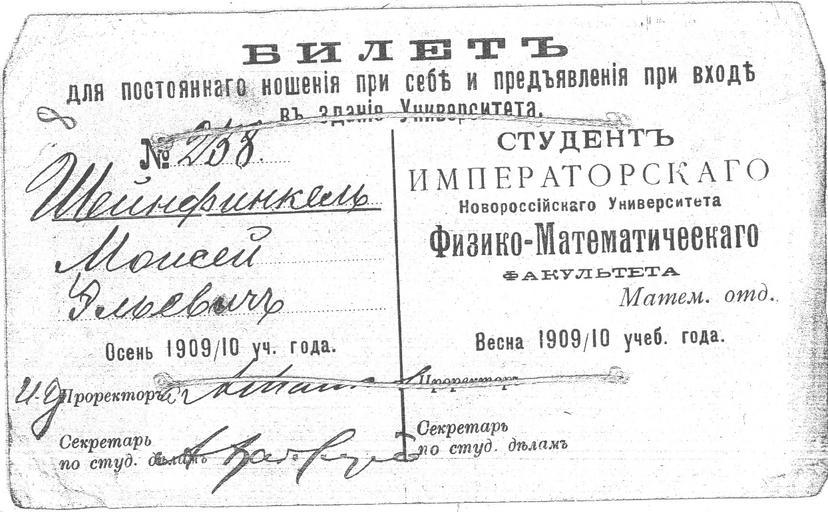 БИЛЕТЪ
для постояннаго ношенія при себѣ и предъявленія при входѣ
въ зданіе Университета.
№ 258.
Шейнфинкель
Моисей
Эльевичъ
Осень 1909/10 уч. года.
И. д. Проректора
Секретарь
по студ. дѣламъ
СТУДЕНТЪ
ИМПЕРАТОРСКАГО
Новороссійскаго Университета
Физико-Математическаго
ФАКУЛЬТЕТА
Матем. отд.
Весна 1909/10 учеб. года.
Проректоръ
Секретарь
по студ. дѣламъ